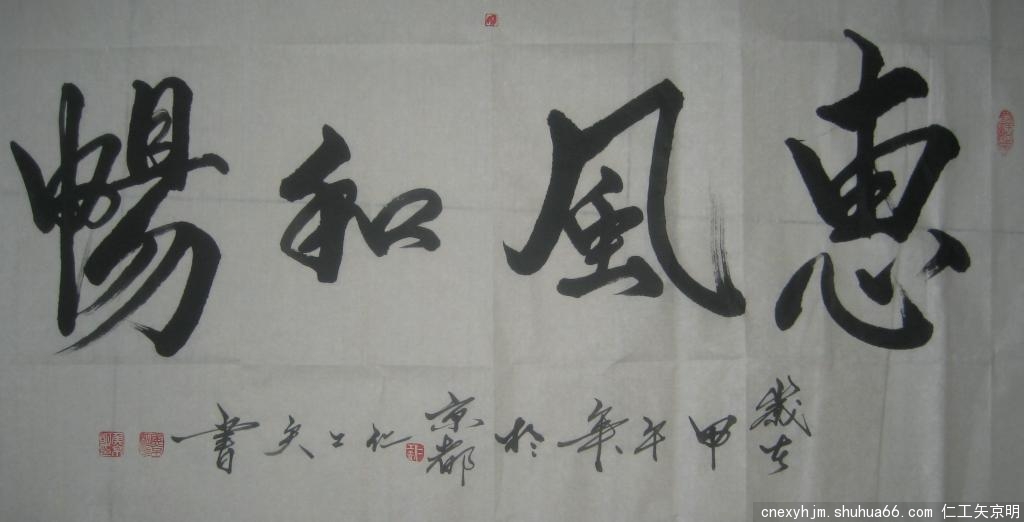 惠風和暢
歲在甲午年於京都仁工矢書
cnexyhjm.shuhua66.com 仁工矢京明